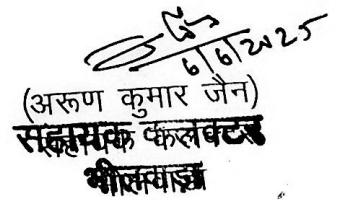 6/6/2025
(अरूण कुमार जैन)
सहायक कलक्टर
भीलवाड़ा